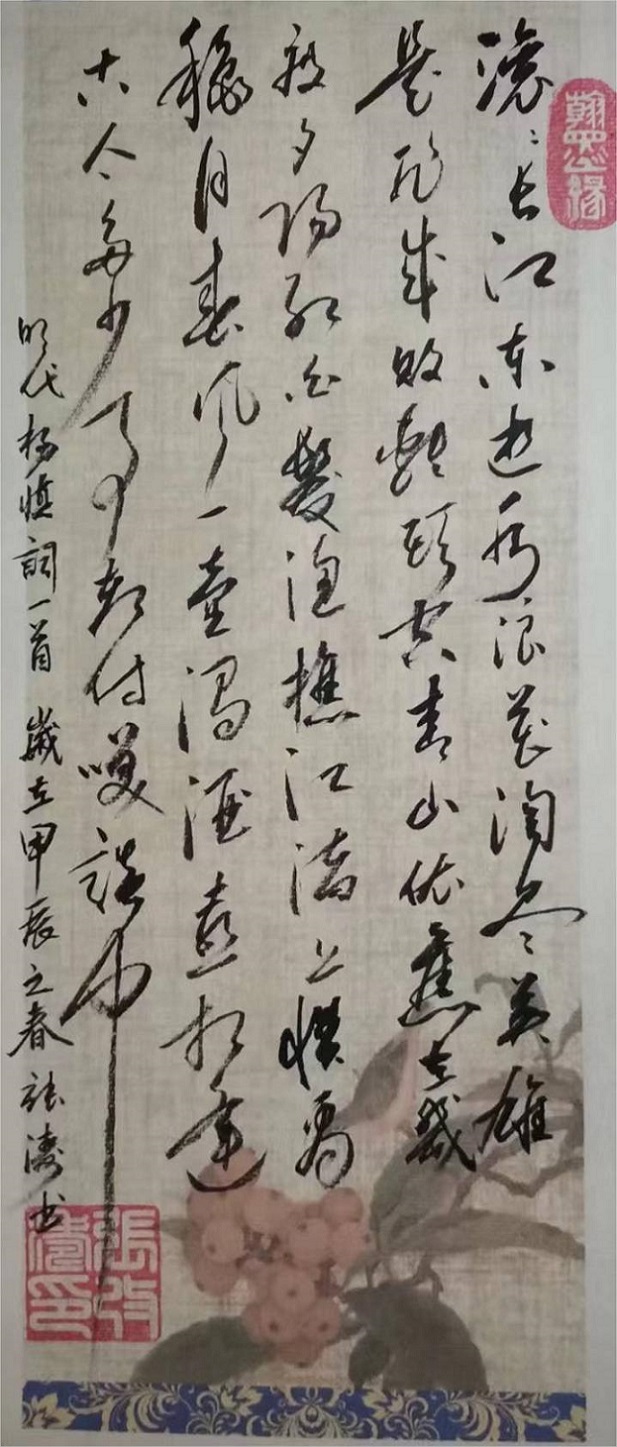 滚滚长江东逝水浪花淘尽英雄
是非成敗轉頭空青山依舊在幾
度夕陽紅白髮漁樵江渚上慣看
秋月春風一壺濁酒喜相逢
古今多少事都付笑談中
明代杨慎詞一首 歲在甲辰之春 張濤书
翰墨缘